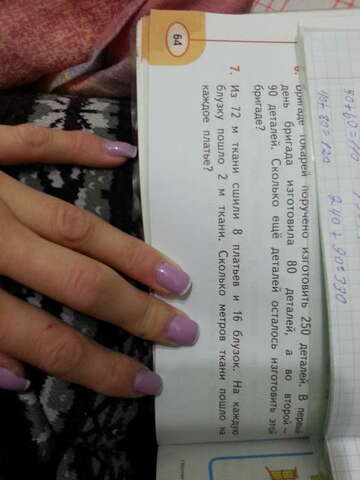 64
6. Бригаде токарей поручено изготовить 250 деталей. В первый
день бригада изготовила 80 деталей, а во второй –
90 деталей. Сколько ещё деталей осталось изготовить этой
бригаде?
7. Из 72 м ткани сшили 8 платьев и 16 блузок. На каждую
блузку пошло 2 м ткани. Сколько метров ткани пошло на
каждое платье?
40+80=120
240+90=330